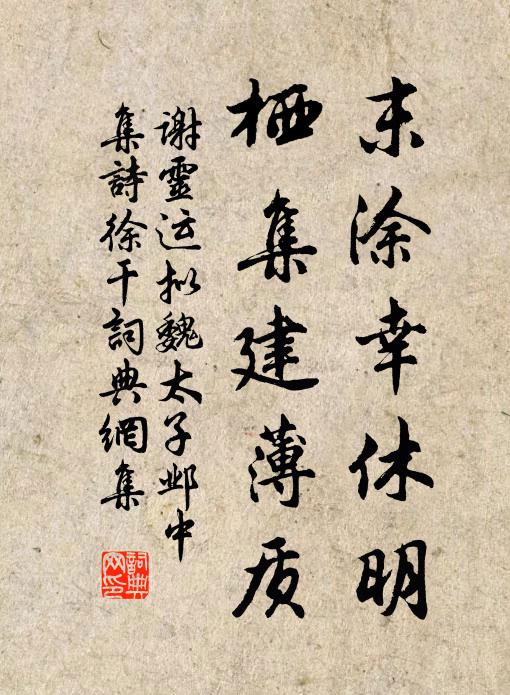 末涂幸休明
栖集建薄质
谢靈运拟魏太子邺中
集詩徐干詞典網集
詞典网印